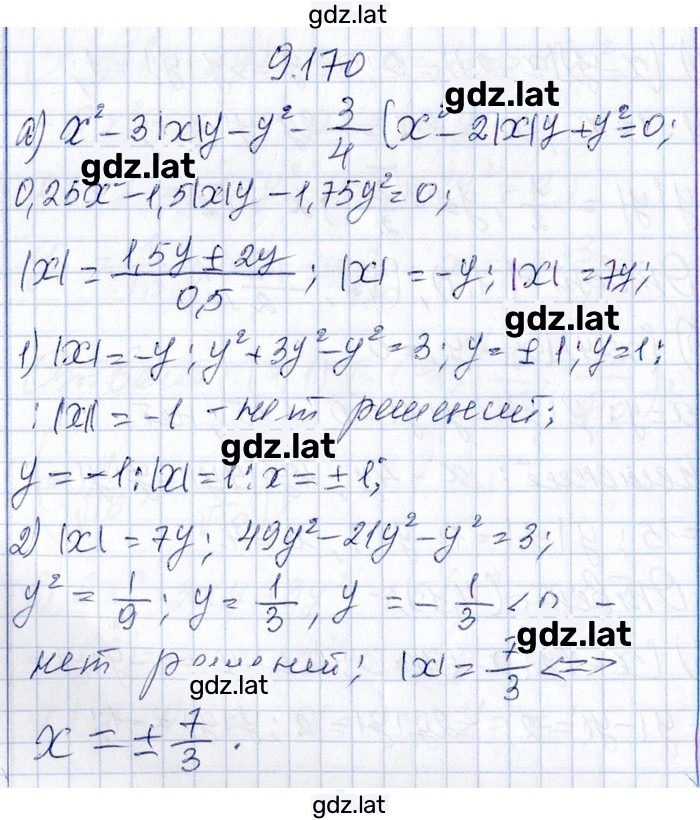 gdz.lat
9.170
gdz.lat
а) x² - 3|x|y - y² - 3/4 (x² - 2|x|y + y² = 0;
gdz.lat
0,25x² - 1,5|x|y - 1,75y² = 0;
|x| = (1,5y ± 2y)/0,5 ; |x| = -y; |x| = 7y;
gdz.lat
1) |x| = -y; y² + 3y² - y² = 3; y = ± 1; y = 1:
: |x| = -1 - нет решений;
gdz.lat
y = -1: |x| = 1: x = ± 1;
2) |x| = 7y; 49y² - 21y² - y² = 3;
y² = 1/9 ; y = 1/3 , y = - 1/3 < 0 -
gdz.lat
нет решений; |x| = 7/3 <=>
gdz.lat
x = ± 7/3 .
gdz.lat